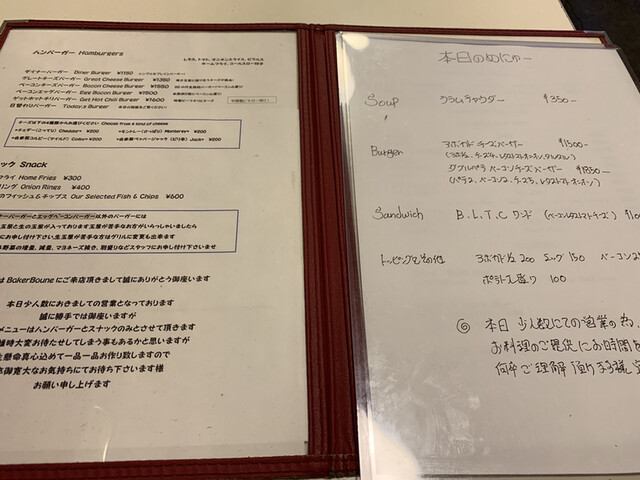 ハンバーガー Hamburgers
レタス、トマト、オニオンスライス、ピクルス
ホームフライ、コールスロー付き
ダイナーバーガー Diner Burger ¥1150
グレートチーズバーガー Great Cheese Burger ¥1350
ベーコンチーズバーガー Bacon Cheese Burger ¥1550
ベーコンエッグバーガー Egg Bacon Burger ¥1500
ゲットホットチリバーガー Get Hot Chili Burger ¥1600
日替わりバーガー Today's Burger
チーズ以下の4種類からお選びください Choose from 4 kind of cheese
+チェダー(こってり) Cheddar+ ¥200 +モントレー(さっぱり) Monterey+ ¥200
+自家製コルビー(マイルド) Colby+ ¥200 +自家製ペッパージャック(ピリ辛) Jack+ ¥200
ック Snack
フライ Home Fries ¥300
リング Onion Rings ¥400
のフィッシュ&チップス Our Selected Fish & Chips ¥600
ナーバーガーとエッグベーコンバーガー以外のバーガーには
と生の玉葱が入っております玉葱が苦手なお方がいらっしゃいましたら
にお申し付け下さい生玉葱が苦手な方はグリルに変更も出来ます
野菜の増量、減量、マヨネーズ抜き、別盛りなどスタッフにお申し付け下さいませ
は BakerBouneにご来店頂きまして誠にありがとう御座います
本日少人数におきましての営業となっております
誠に勝手では御座いますが
メニューはハンバーガーとスナックのみとさせて頂きます
時大変お待たせしてしまう事もあるかと思いますが
生懸命真心込めて一品一品お作り致しますので
御寛大なお気持ちにてお待ち下さいます様
お願い申し上げます
本日のめにゅー
Soup クラムチャウダー $350-
Burger アボカド チーズバーガー ¥1500-
ダブルパテ ベーコンチーズバーガー ¥1850-
(パテ2、ベーコン2、チーズ2、レタストマトオニオン)
Sandwich B.L.T.C サンド (ベーコンレタストマトチーズ)
トッピングその他 アボカド1/2 200 エッグ 150 ベーコン2
ポテト大盛り 100
◎ 本日 少人数にての営業の為、
お料理のご提供にお時間を
何卒ご理解 頂けます様